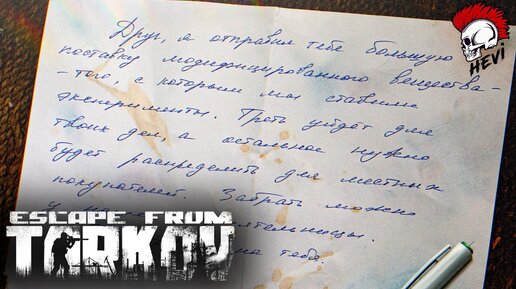 Друг, я отправил тебе большую
поставку модифицированного вещества -
- того, с которым мы ставили
эксперименты. Треть уйдёт для
твоих дел, а остальное нужно
будет распределить для местных
покупателей. Забрать можно
у
на тебя.
HEVI
ESCAPE FROM
TARKOV